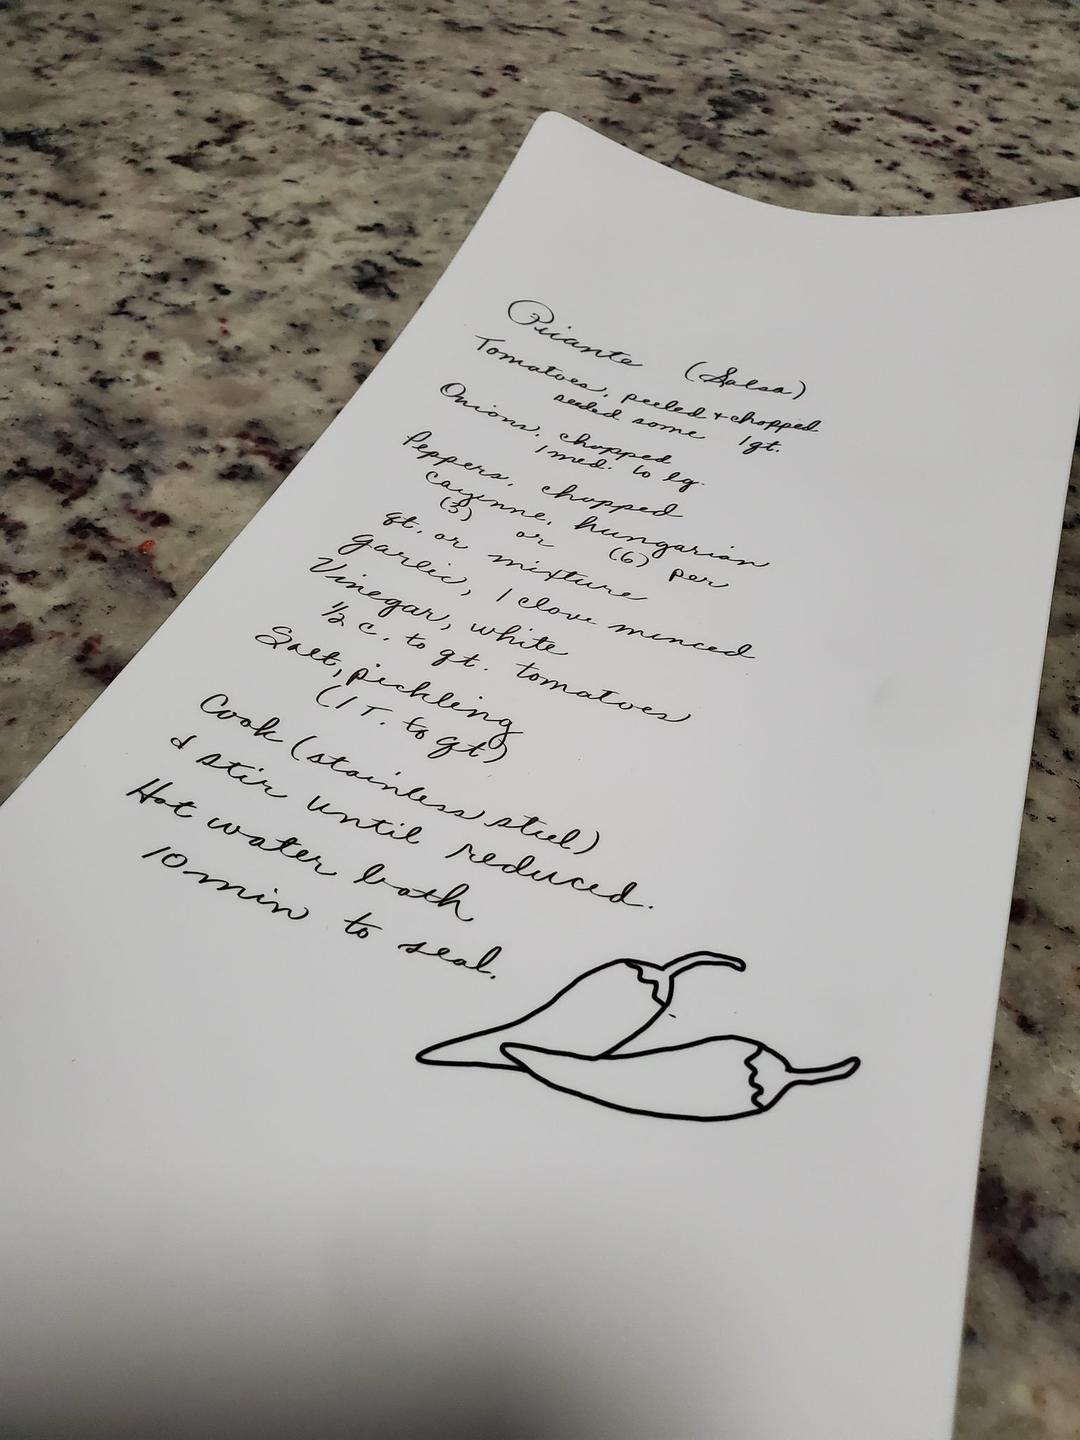 Picante (Salsa)
Tomatoes, peeled + chopped
seeded some 1 qt.
Onions, chopped
1 med. to lg.
Peppers, chopped
Cayenne, hungarian
(3) or (6) per
qt. or mixture
garlic, 1 clove minced
Vinegar, white
1/2 c. to qt. tomatoes
Salt, pickling
(1 T. to qt)
Cook (stainless steel)
& stir until reduced.
Hot water bath
10 min to seal.